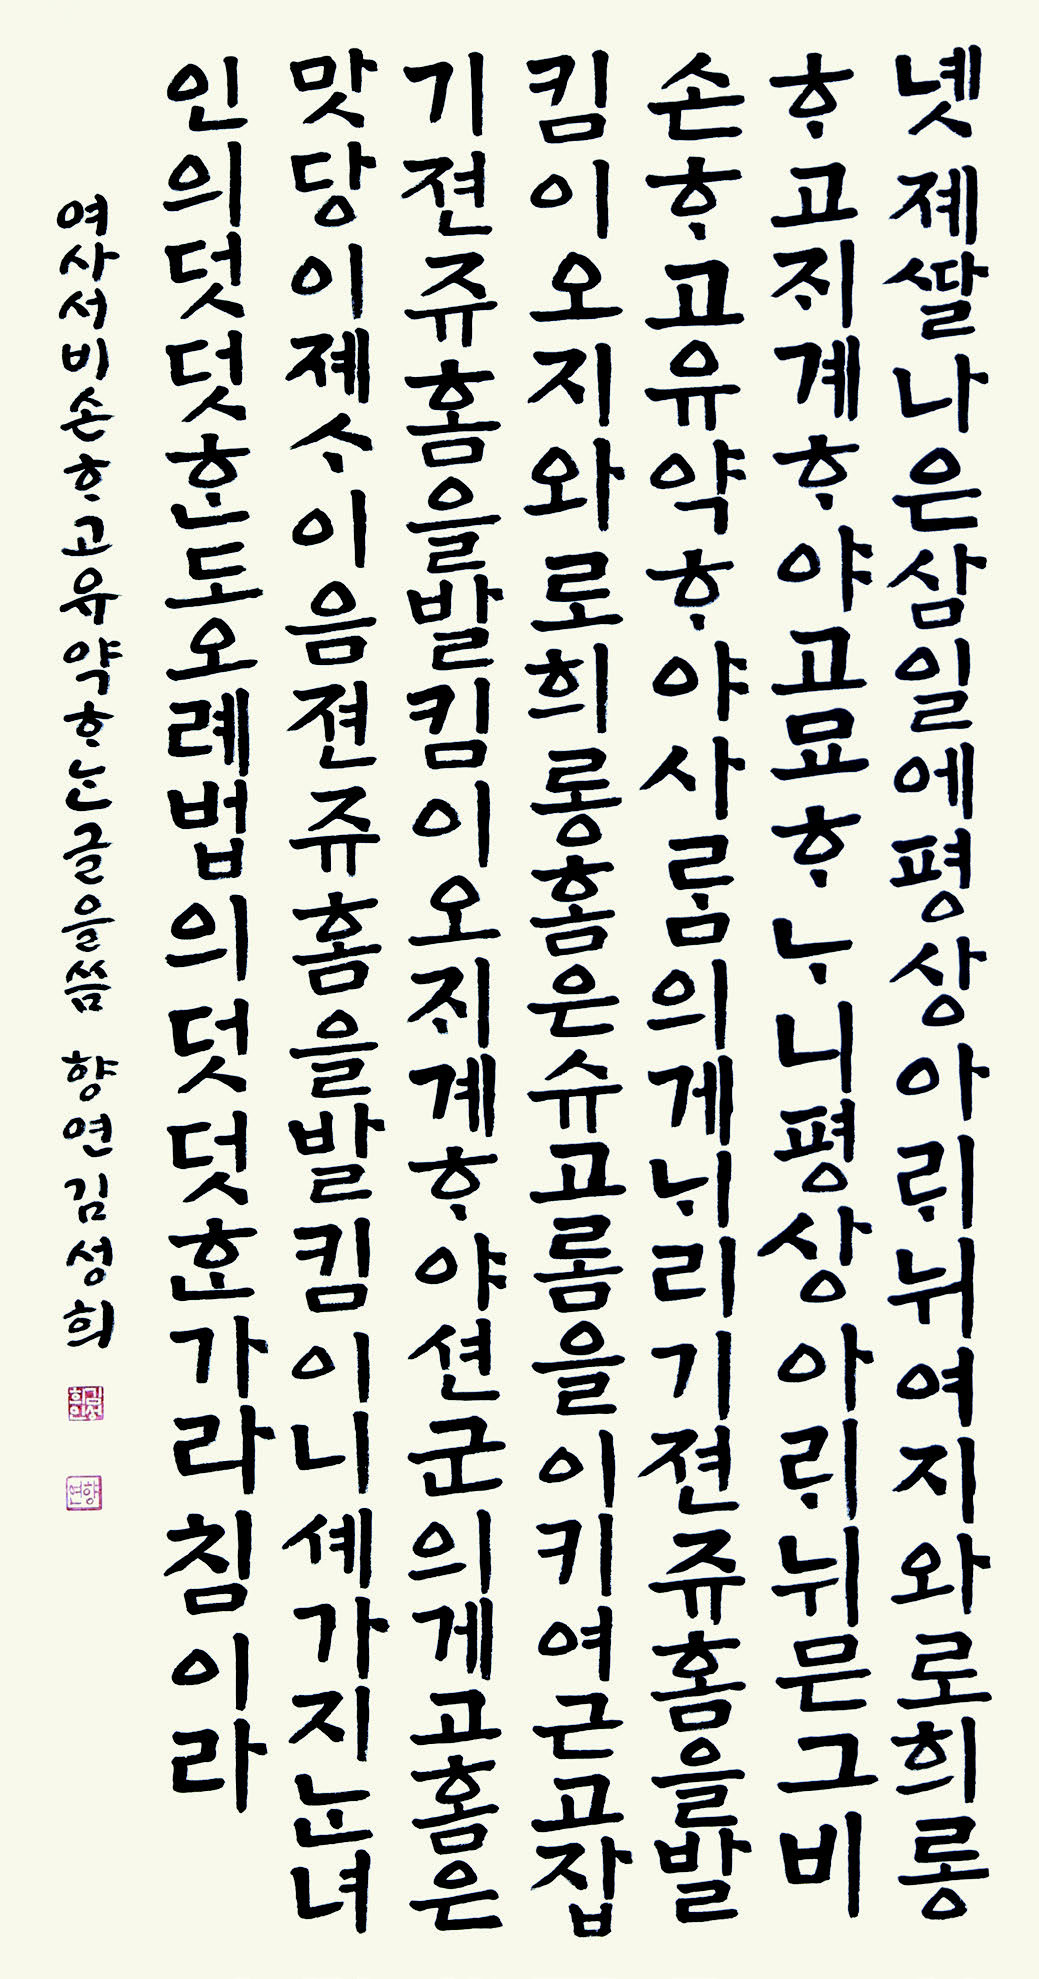 녯졔ᄯᅡᆯ나은삼일에평상아ᄅᆡ뉘여지와로희롱
ᄒᆞ고ᄌᆡ계ᄒᆞ야고묘ᄒᆞᄂᆞ니평상아ᄅᆡ뉘믄그비
손ᄒᆞ고유약ᄒᆞ야사ᄅᆞᆷ의게ᄂᆡ리기젼쥬홈을발
킴이오지와로희롱홈은슈고롬을이키여근고잡
기젼쥬홈을발킴이오ᄌᆡ계ᄒᆞ야션군의게고홈은
맛당이졔ᄉᆞ이음젼쥬홈을발킴이니셰가지ᄂᆞᆫ녀
인의덧덧ᄒᆞᆫ도오례법의덧덧ᄒᆞᆫ가라침이라
여사서비손ᄒᆞ고유약ᄒᆞᄂᆞᆫ글을씀 향연김성희
김성희인
향연